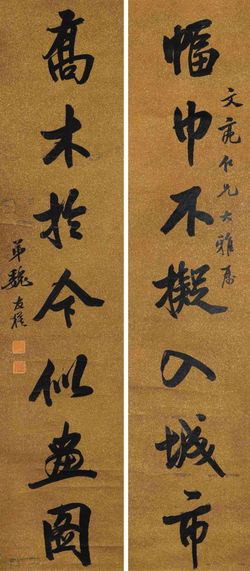 文亮仁兄大雅属
幅巾不擬入城市
高木於今似畫圖
弟魏友棐